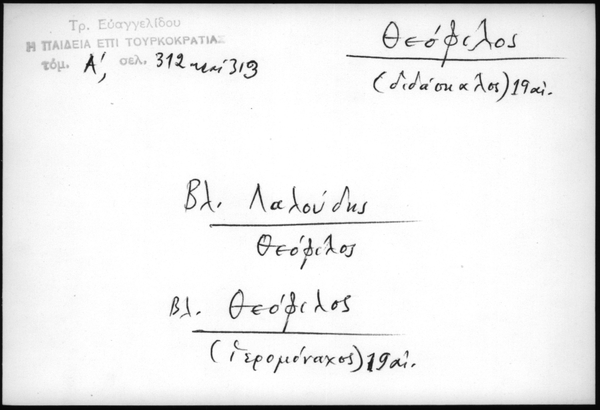 Τρ. Εὐαγγελίδου
Η ΠΑΙΔΕΙΑ ΕΠΙ ΤΟΥΡΚΟΚΡΑΤΙΑΣ
τόμ. Α', σελ. 312 καί 313
Θεόφιλος
(διδάσκαλος) 19 αἰ.
Βλ. Λαλούδης
Θεόφιλος
Βλ. Θεόφιλος
(ἱερομόναχος) 19 αἰ.